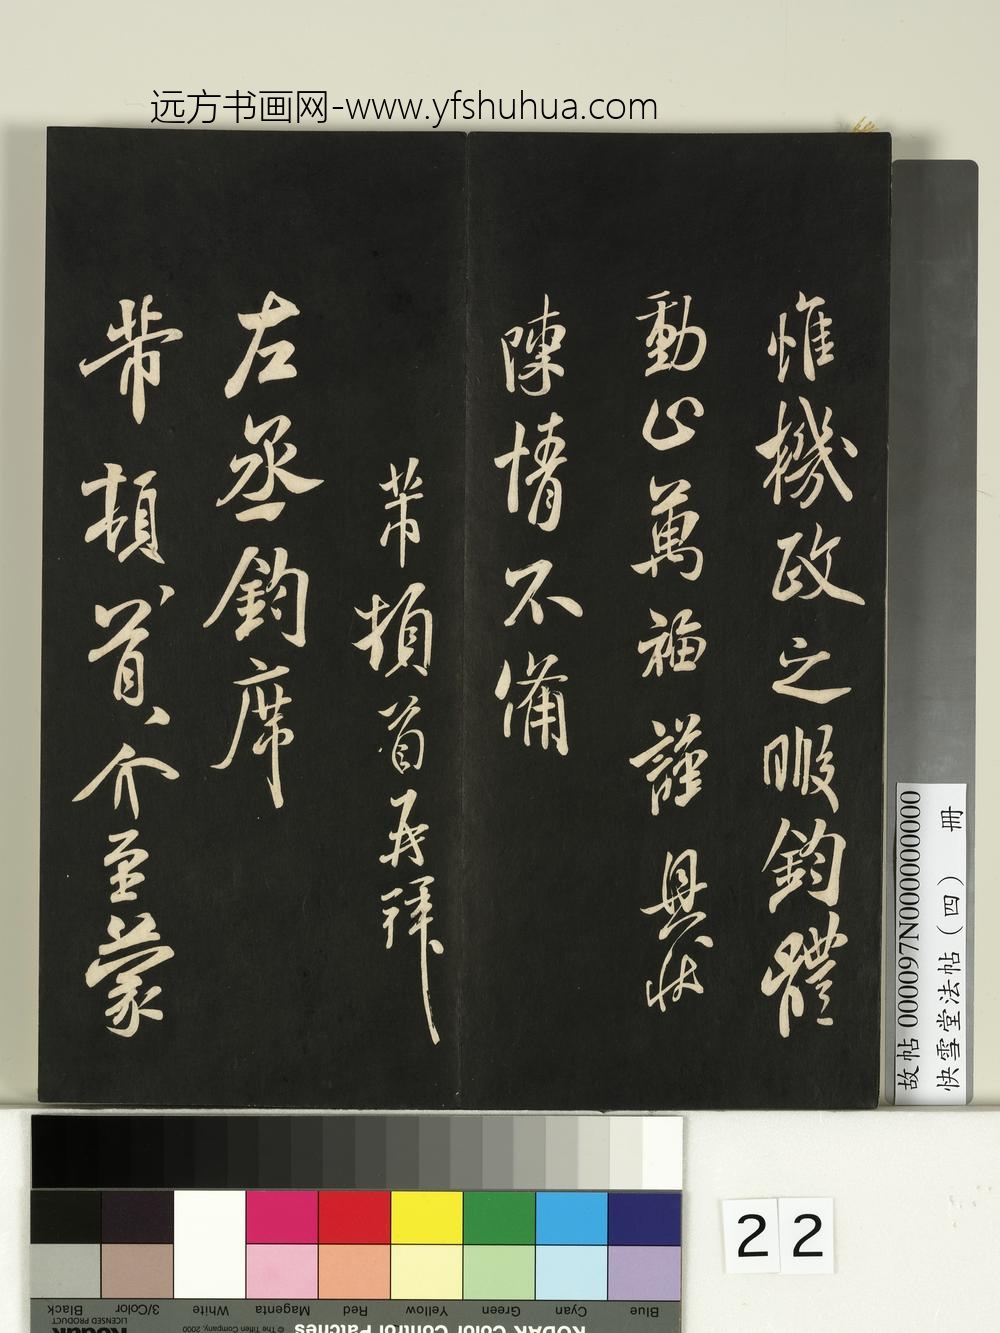 远方书画网-www.yfshuhua.com
惟機政之暇鈞體
動止萬福謹具狀
陳情不備
芾頓首再拜
左丞鈞席
芾頓首介至蒙
故帖 000097N000000000
快雪堂法帖（四） 冊
22
Blue Cyan Green Yellow Red Magenta White 3/Color Black
KODAK Color Control Patches
© The Tiffen Company, 2000
Kodak
LICENSED PRODUCT